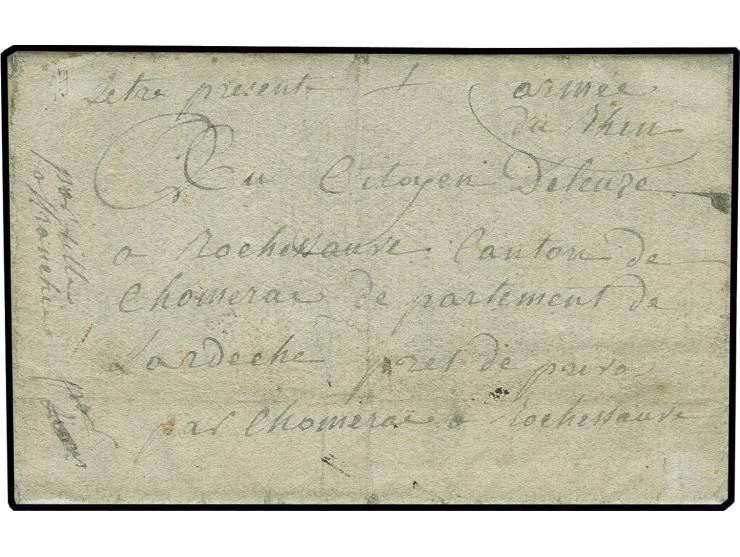 Letre presente
armée
du Rhin
Au Citoyen Deleuze
a Rochessauve Canton de
Chomerac de partement de
Lardeche pret de priva
par Chomerac a Rochessauve
par ville
franche
par